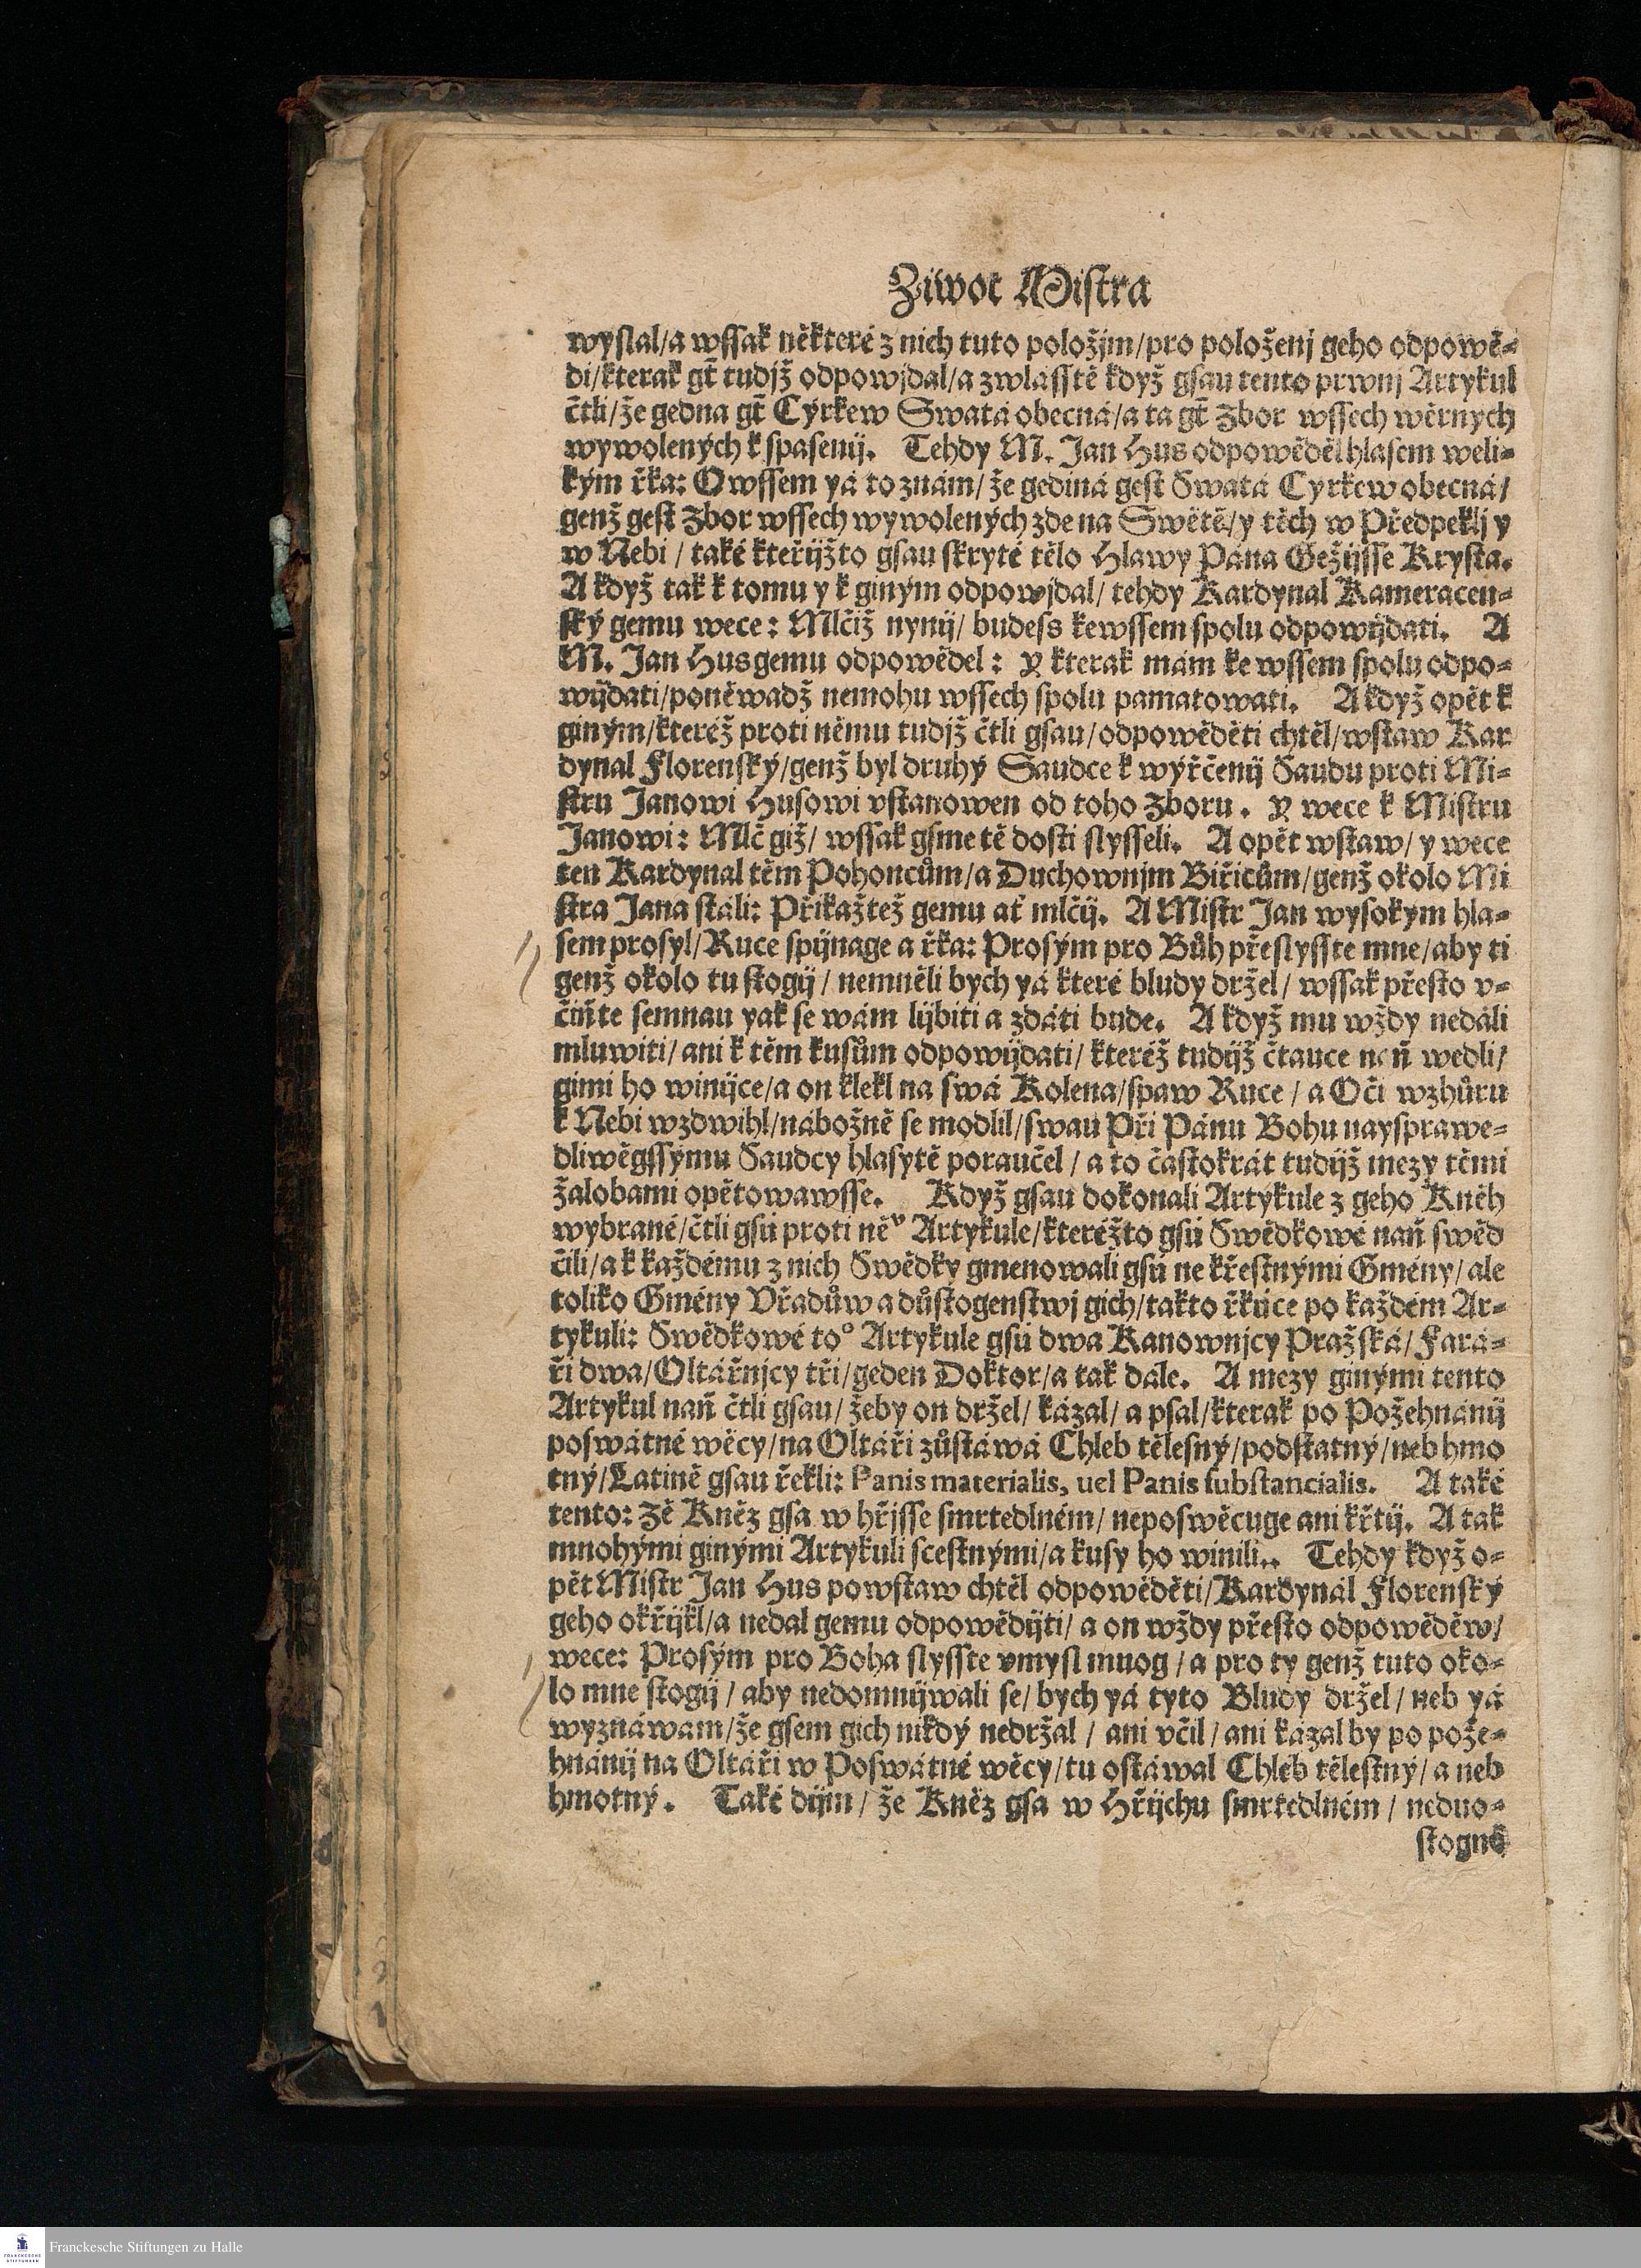 Ziwot Mistra
wyslal/a wssak některé z nich tuto položjm/pro položenj geho odpowě-
di/kterak gt̄ tudjž odpowjdal/a zwlásstě když gsau tento prwnj Artykul
čtli/že gedna gt̄ Cýrkew Swatá obecná/a ta gt̄ Zbor wssech wěrných
wywolených k spasenij. Tehdy M. Jan Hus odpowěděl hlasem weli-
kým řka: Owssem yá to znám/ že gediná gest Swatá Cyrkew obecná/
genž gest Zbor wssech wywolených zde na Swětě/y těch w Předpeklj y
w Nebi / také kteřijžto gsau skryté tělo Hlawy Pána Gežijsse Krysta.
A když tak k tomu y k giným odpowjdal/ tehdy Kardynal Kameracen-
ský gemu wece: Mlčiž nynij/ budess kewssem spolu odpowijdati. A
M. Jan Hus gemu odpowědel: Y kterak mám ke wssem spolu odpo-
wijdati/poněwadž nemohu wssech spolu pamatowati. A když opět k
giným/kteréž proti němu tudjž čtli gsau/odpowěděti chtěl/wstaw Kar
dynal Florenský/genž byl druhý Saudce k wyřčenij Saudu proti Mi-
stru Janowi Husowi vstanowen od toho Zboru. Y wece k Mistru
Janowi: Mlč giž/ wssak gsme tě dosti slysseli. A opět wstaw/ y wece
ten Kardynal těm Pohoncům/a Duchownjm Biřicům/genž okolo Mi
stra Jana stáli: Přikažtež gemu ať mlčij. A Mistr Jan wysokým hla-
sem prosyl/Ruce spijnage a řka: Prosým pro Bůh přeslysste mne/aby ti
genž okolo tu stogij / nemněli bych yá které bludy držel/ wssak přesto v-
čiňte semnau yak se wám lijbiti a zdáti bude. A když mu wždy nedáli
mluwiti/ ani k těm kusům odpowijdati/ kteréž tudijž čtauce naň wedli/
gimi ho winijce/a on klekl na swá Kolena/spaw Ruce / a Oči wzhůru
k Nebi wzdwihl/nábožně se modlil/swau Při Pánu Bohu naysprawe-
dliwěgssýmu Saudcy hlasytě poraučel / a to častokrát tudijž mezy těmi
žalobami opětowawsse. Když gsau dokonali Artykule z geho Kněh
wybrané/čtli gsú proti ně͛ Artykule/kteréžto gsú Swědkowé naň swěd
čili/a k každému z nich Swědky gmenowali gsú ne křestnými Gmény/ ale
toliko Gmény Vřadůw a důstogenstwj gich/takto řkúce po každém Ar-
tykuli: Swědkowé to° Artykule gsú dwa Kanownjcy Pražská/ Fará-
ři dwa/Oltářnjcy tři/geden Doktor/a tak dále. A mezy ginými tento
Artykul naň čtli gsau/ žeby on držel/ kázal/ a psal/kterak po Požehnánij
poswátné wěcy/na Oltáři zůstáwá Chleb tělesný/podstatný/neb hmo
tný/Latině gsau řekli: Panis materialis, uel Panis substancialis. A také
tento: Zě Kněz gsa w hřjsse smrtedlném/ neposwěcuge ani křtij. A tak
mnohými ginými Artykuli scestnými/a kusy ho winili.. Tehdy když o-
pět Mistr Jan Hus powstaw chtěl odpowěděti/Kardynál Florenský
geho okřijkl/a nedal gemu odpowědijti/ a on wždy přesto odpowěděw/
wece: Prosým pro Boha slysste vmysl muog / a pro ty genž tuto oko-
lo mne stogij / aby nedomnijwali se/ bych yá tyto Bludy držel / neb yá
wyznáwam/že gsem gich nikdý nedržal / ani včil / ani kázal by po pože-
hnánij na Oltáři w Poswátné wěcy/tu ostáwal Chléb tělestný/ a neb
hmotný. Také dijm / že Kněz gsa w Hřijchu smrtedlném / neduo-
stogně
Franckesche Stiftungen zu Halle